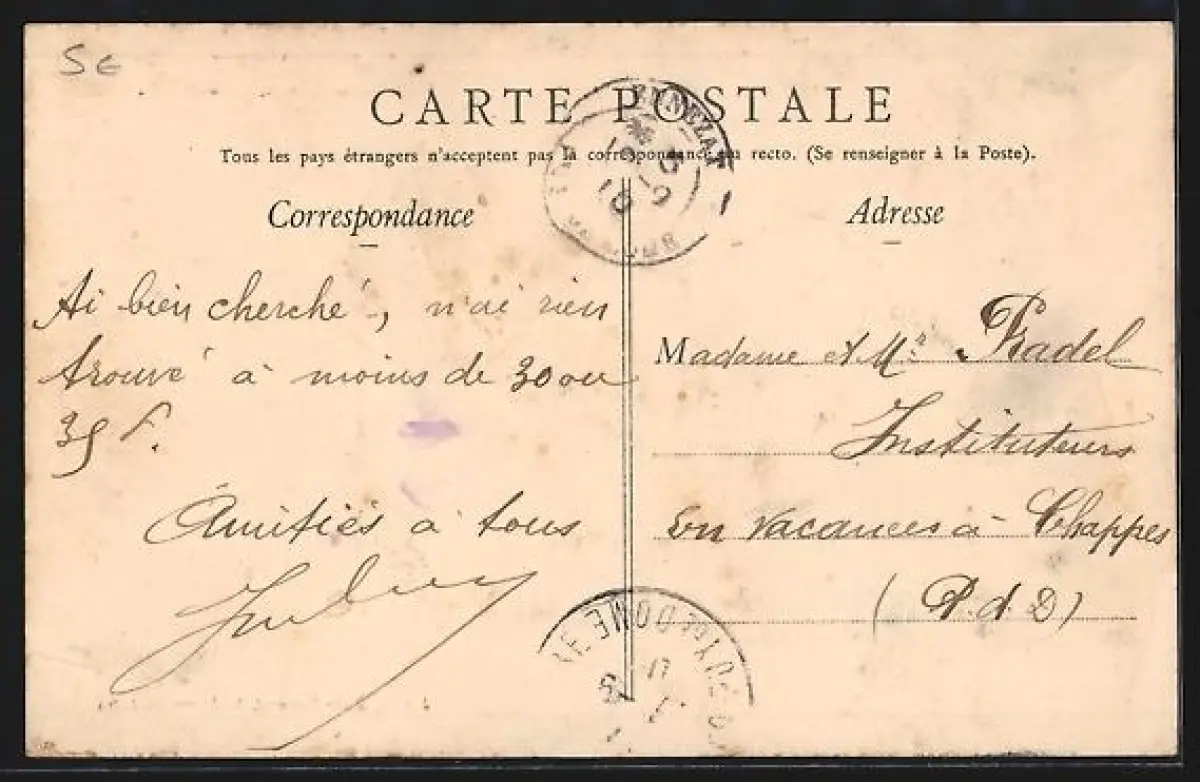 CARTE POSTALE
Tous les pays étrangers n'acceptent pas la correspondance au recto. (Se renseigner à la Poste).
Correspondance
Adresse
Ai bien cherché, n'ai rien
trouvé à moins de 30 ou
35 f.
Amitiés à tous
Madame et Mr Pradel
Instituteurs
en vacances à Chappes
(P. d. D)
ENNEZAT
PUY DE DOME